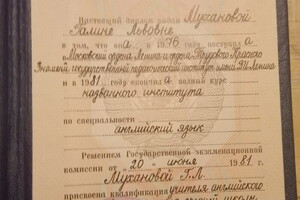 Настоящий диплом выдан Мухановой
Галине Львовне
в том, что она в 1976 году поступила
в Московский ордена Ленина и ордена Трудового Красного
Знамени государственный педагогический институт имени В.И. Ленина
и в 1981 году окончила полный курс
названного института
по специальности
английский язык
Решением Государственной экзаменационной
комиссии от 20 июня 1981 г.
Мухановой Г.Л.
присвоена квалификация учителя английского
школы